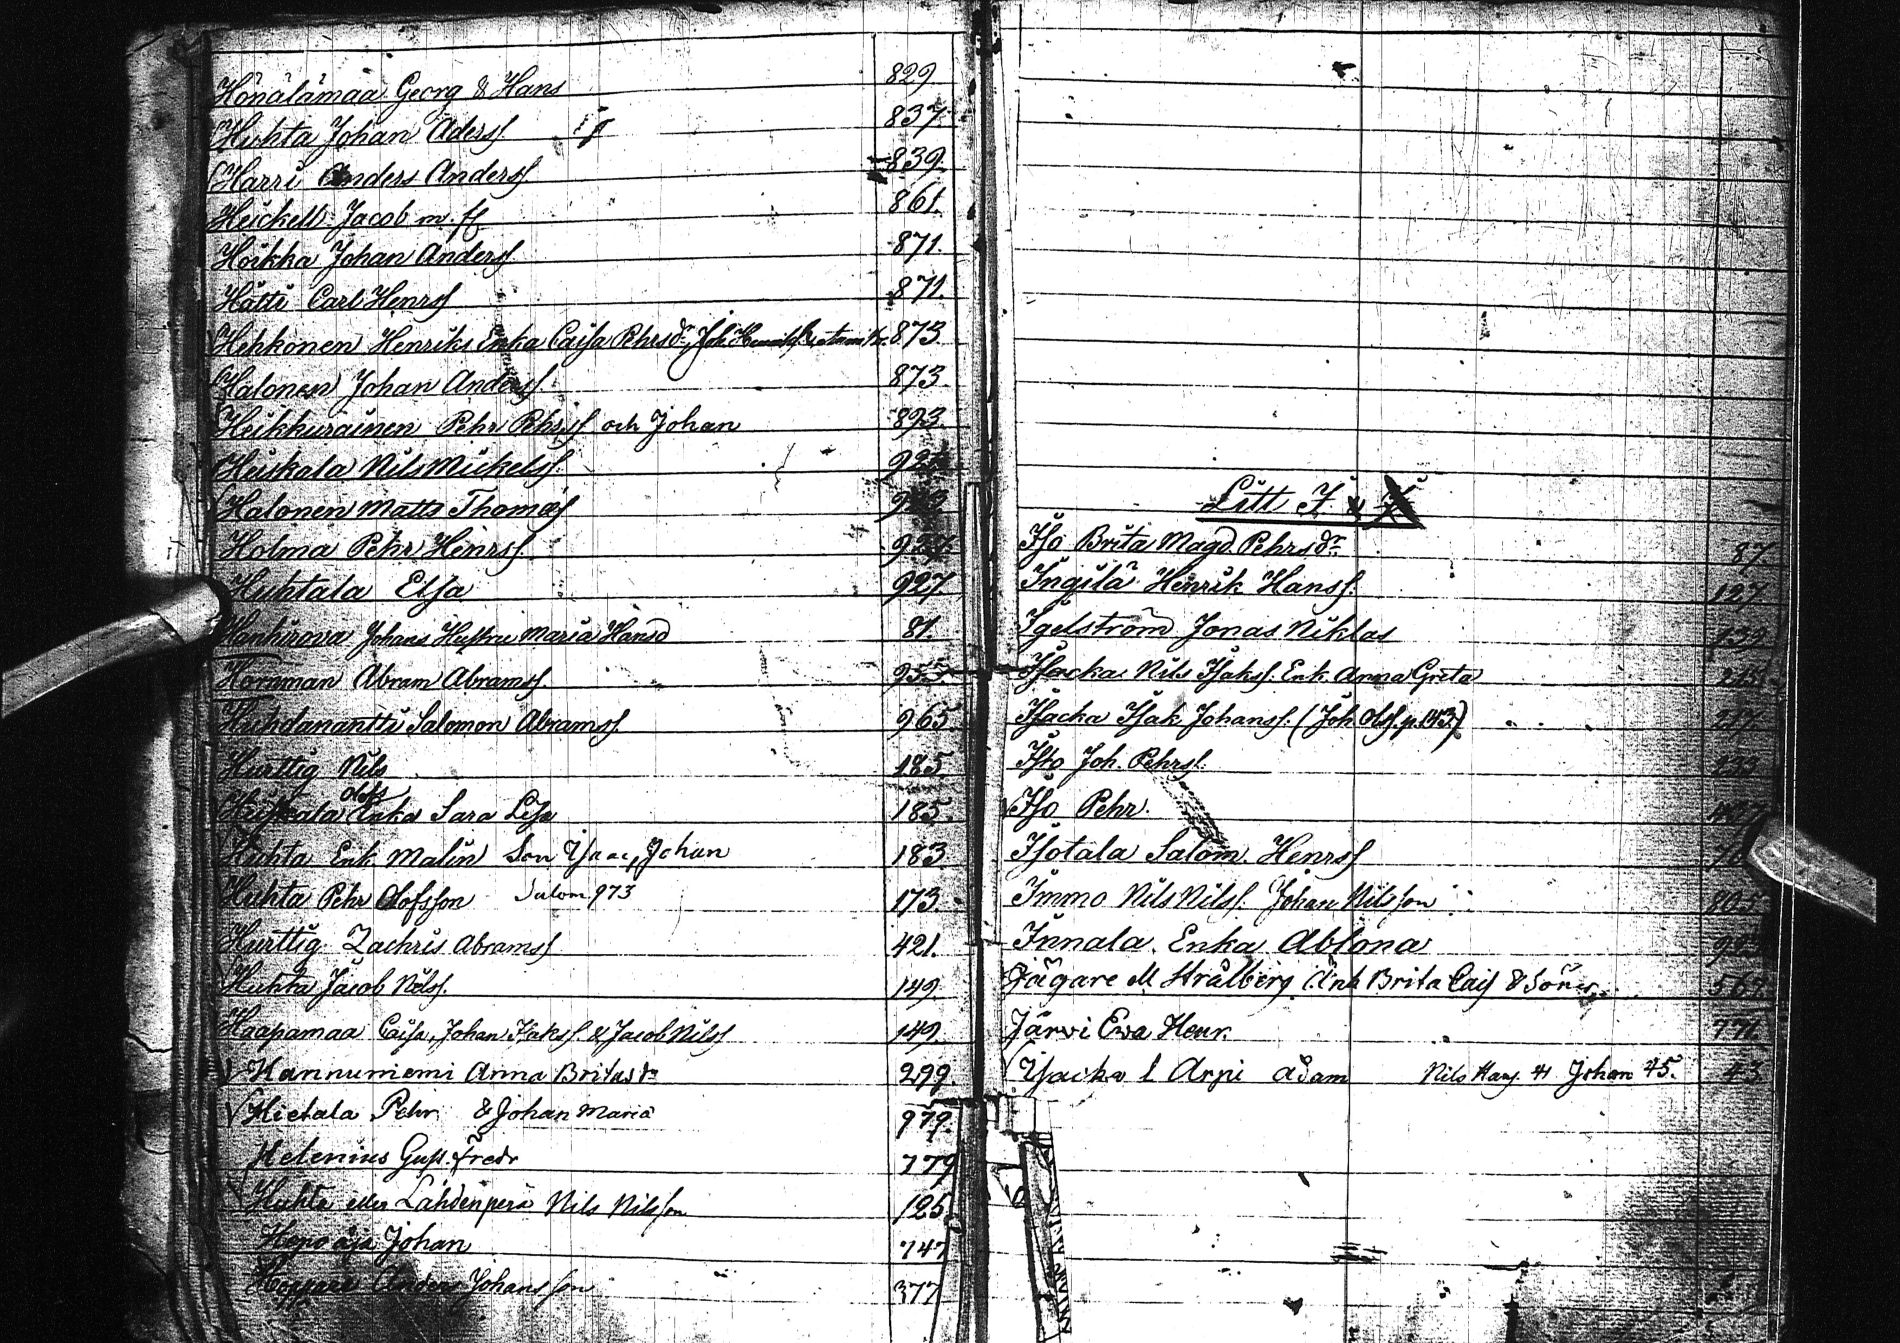 Hönälämaa Georg & Hans 829
Huhta Johan Aderss. 837
Harri Anders Anderss 839.
Heickell Jacob m. fl 861.
Hoikka Johan Anderss 871.
Hötti Carl Henrss 871.
Hehkonen Henriks Enka Caisa Pehrsdr, Joh 873.
Halonen Johan Anderss. 873.
Heikkurainen Pehr Pehrss och Johan 893.
Heiskala Nils Mickelss.
Halonen Matts Thomass
Holma Pehr Hinrss. 927.
Huhtala Elsa 927.
Hanhirova Johans Hustru Maria Hansd 81.
Hornman Abram Abramss. 955
Huhdanantti Salomon Abramss. 965.
Hurttig Nils 185.
Olofs
Enka Sara Lisa 185.
Huhta Enk Malin Son Isaac, Johan 183
Huhta Pehr Olofsson Salom 973 173.
Hurttig Zachris Abramss. 421.
Huhta Jacob Nilss. 149.
Haapamaa Caisa, Johan Isakss. & Jacob Nilss 149.
Hannuniemi Anna Britasdr 299.
Hietala Pehr & Johan Maria 979.
Helenius Gust. Fredr 779
Huhta eller Lahdenperä Nils Nilsson 125
Johan 747
Anders Johansson 377
Litt I &
Iso Brita Magd. Pehrsdr 87.
Ingilä Henrik Hanss. 127.
Igelström Jonas Niklas 139
Isacka Nils Isakss. Enk. Anna Greta
Isacka Isak Johanss. (Joh Olss. p. 143.)
Isto Joh. Pehrss. 233
Iso Pehr.
Isotala Salom. Henrss
Immo Nils Nilss. Johan Nilsson 805
Innala Enka Ablona
Jägare M Strålberg Enk Brita Cais & Söner 567.
Järvi Ewa Henr. 771.
Isacka l Arpi Adam Nils Hans. 41 Johan 45. 43.